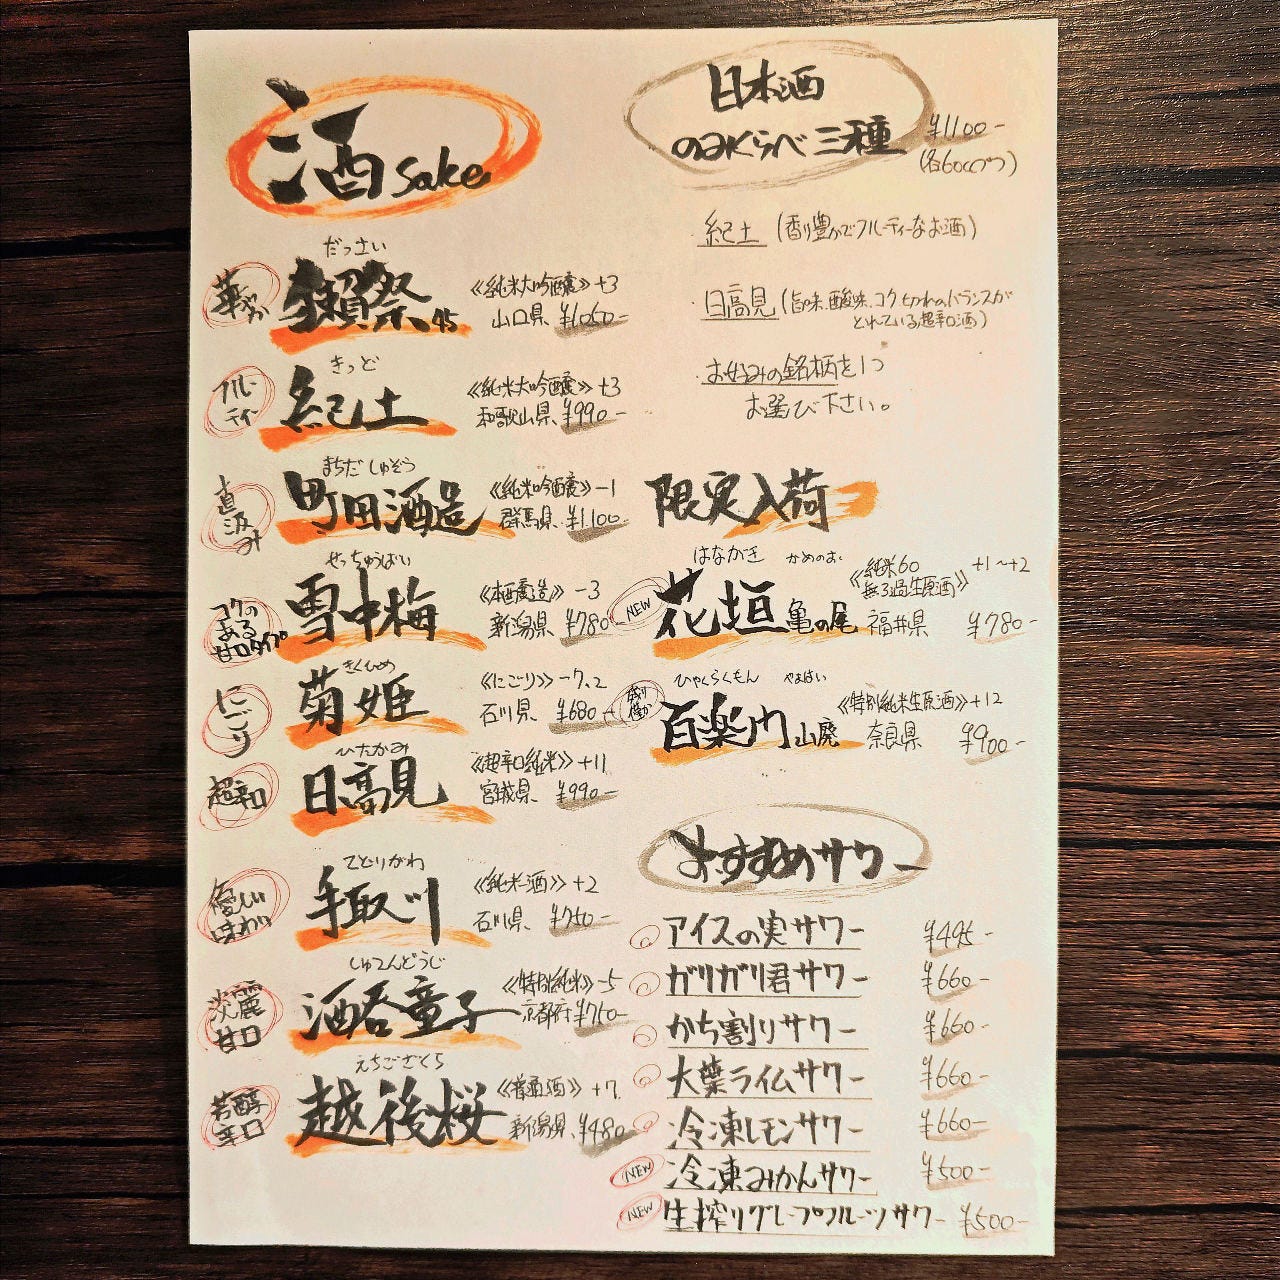 酒 sake
だっさい
華やか
獺祭45
《純米大吟醸》+3
山口県 ¥1060-
きっど
フルーティー
紀土
《純米大吟醸》+3
和歌山県 ¥990-
まちだしゅぞう
直汲み
町田酒造
《純米吟醸》-1
群馬県 ¥1,100-
せっちゅうばい
コクの
ある
甘口タイプ
雪中梅
《本醸造》-3
新潟県 ¥780-
きくひめ
にごり
菊姫
《にごり》-7.2
石川県 ¥680-
ひたかみ
超辛口
日高見
《超辛口純米》+11
宮城県 ¥990-
てどりがわ
優しい
味わい
手取川
《純米酒》+2
石川県 ¥750-
しゅてんどうじ
淡麗
甘口
酒呑童子
《特別純米》-5
京都府 ¥760-
えちござくら
芳醇
辛口
越後桜
《普通酒》+7
新潟県 ¥480-
日本酒
のみくらべ三種
¥1100-
(各60ccずつ)
紀土 (香り豊かでフルーティーなお酒)
日高見 (旨味、酸味、コク、切れのバランスが
とれている超辛口酒)
お好みの銘柄を1つ
お選び下さい。
限定入荷
はながき かめのお
NEW
花垣 亀の尾
《純米60
無ろ過生原酒》
+1〜+2
福井県 ¥780-
ひゃくらくもん やまはい
百楽門 山廃
《特別純米生原酒》+12
奈良県 ¥900-
おすすめサワー
アイスの実サワー ¥495-
ガリガリ君サワー ¥660-
かち割りサワー ¥660-
大葉ライムサワー ¥660-
冷凍レモンサワー ¥660-
NEW 冷凍みかんサワー ¥500-
NEW 生搾りグレープフルーツサワー ¥500-